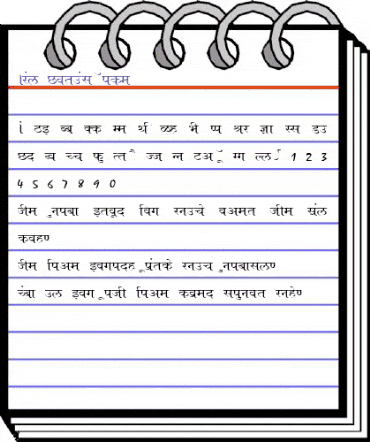 रिंल छवतउंस पकम
i टइ ब्ब क्क म्म र्थ ळ्ह भै ष्प श्रर ज्ञा स्स डउ
छद ब्य च्च फु त्त ज्ज न्न टअ ग्ग ल्ल 1 2 3
4 5 6 7 8 9 0
जीम ुनपबा इतवूद विग रनउचे वअमत जीम संल
कवहण
जीम पिअम इवगपदह ूप्रंतके रनउच ुनपबासलण
च्ंबा उल इवग ूपजी पिअम कव्रमद सपुनवत रनहेण